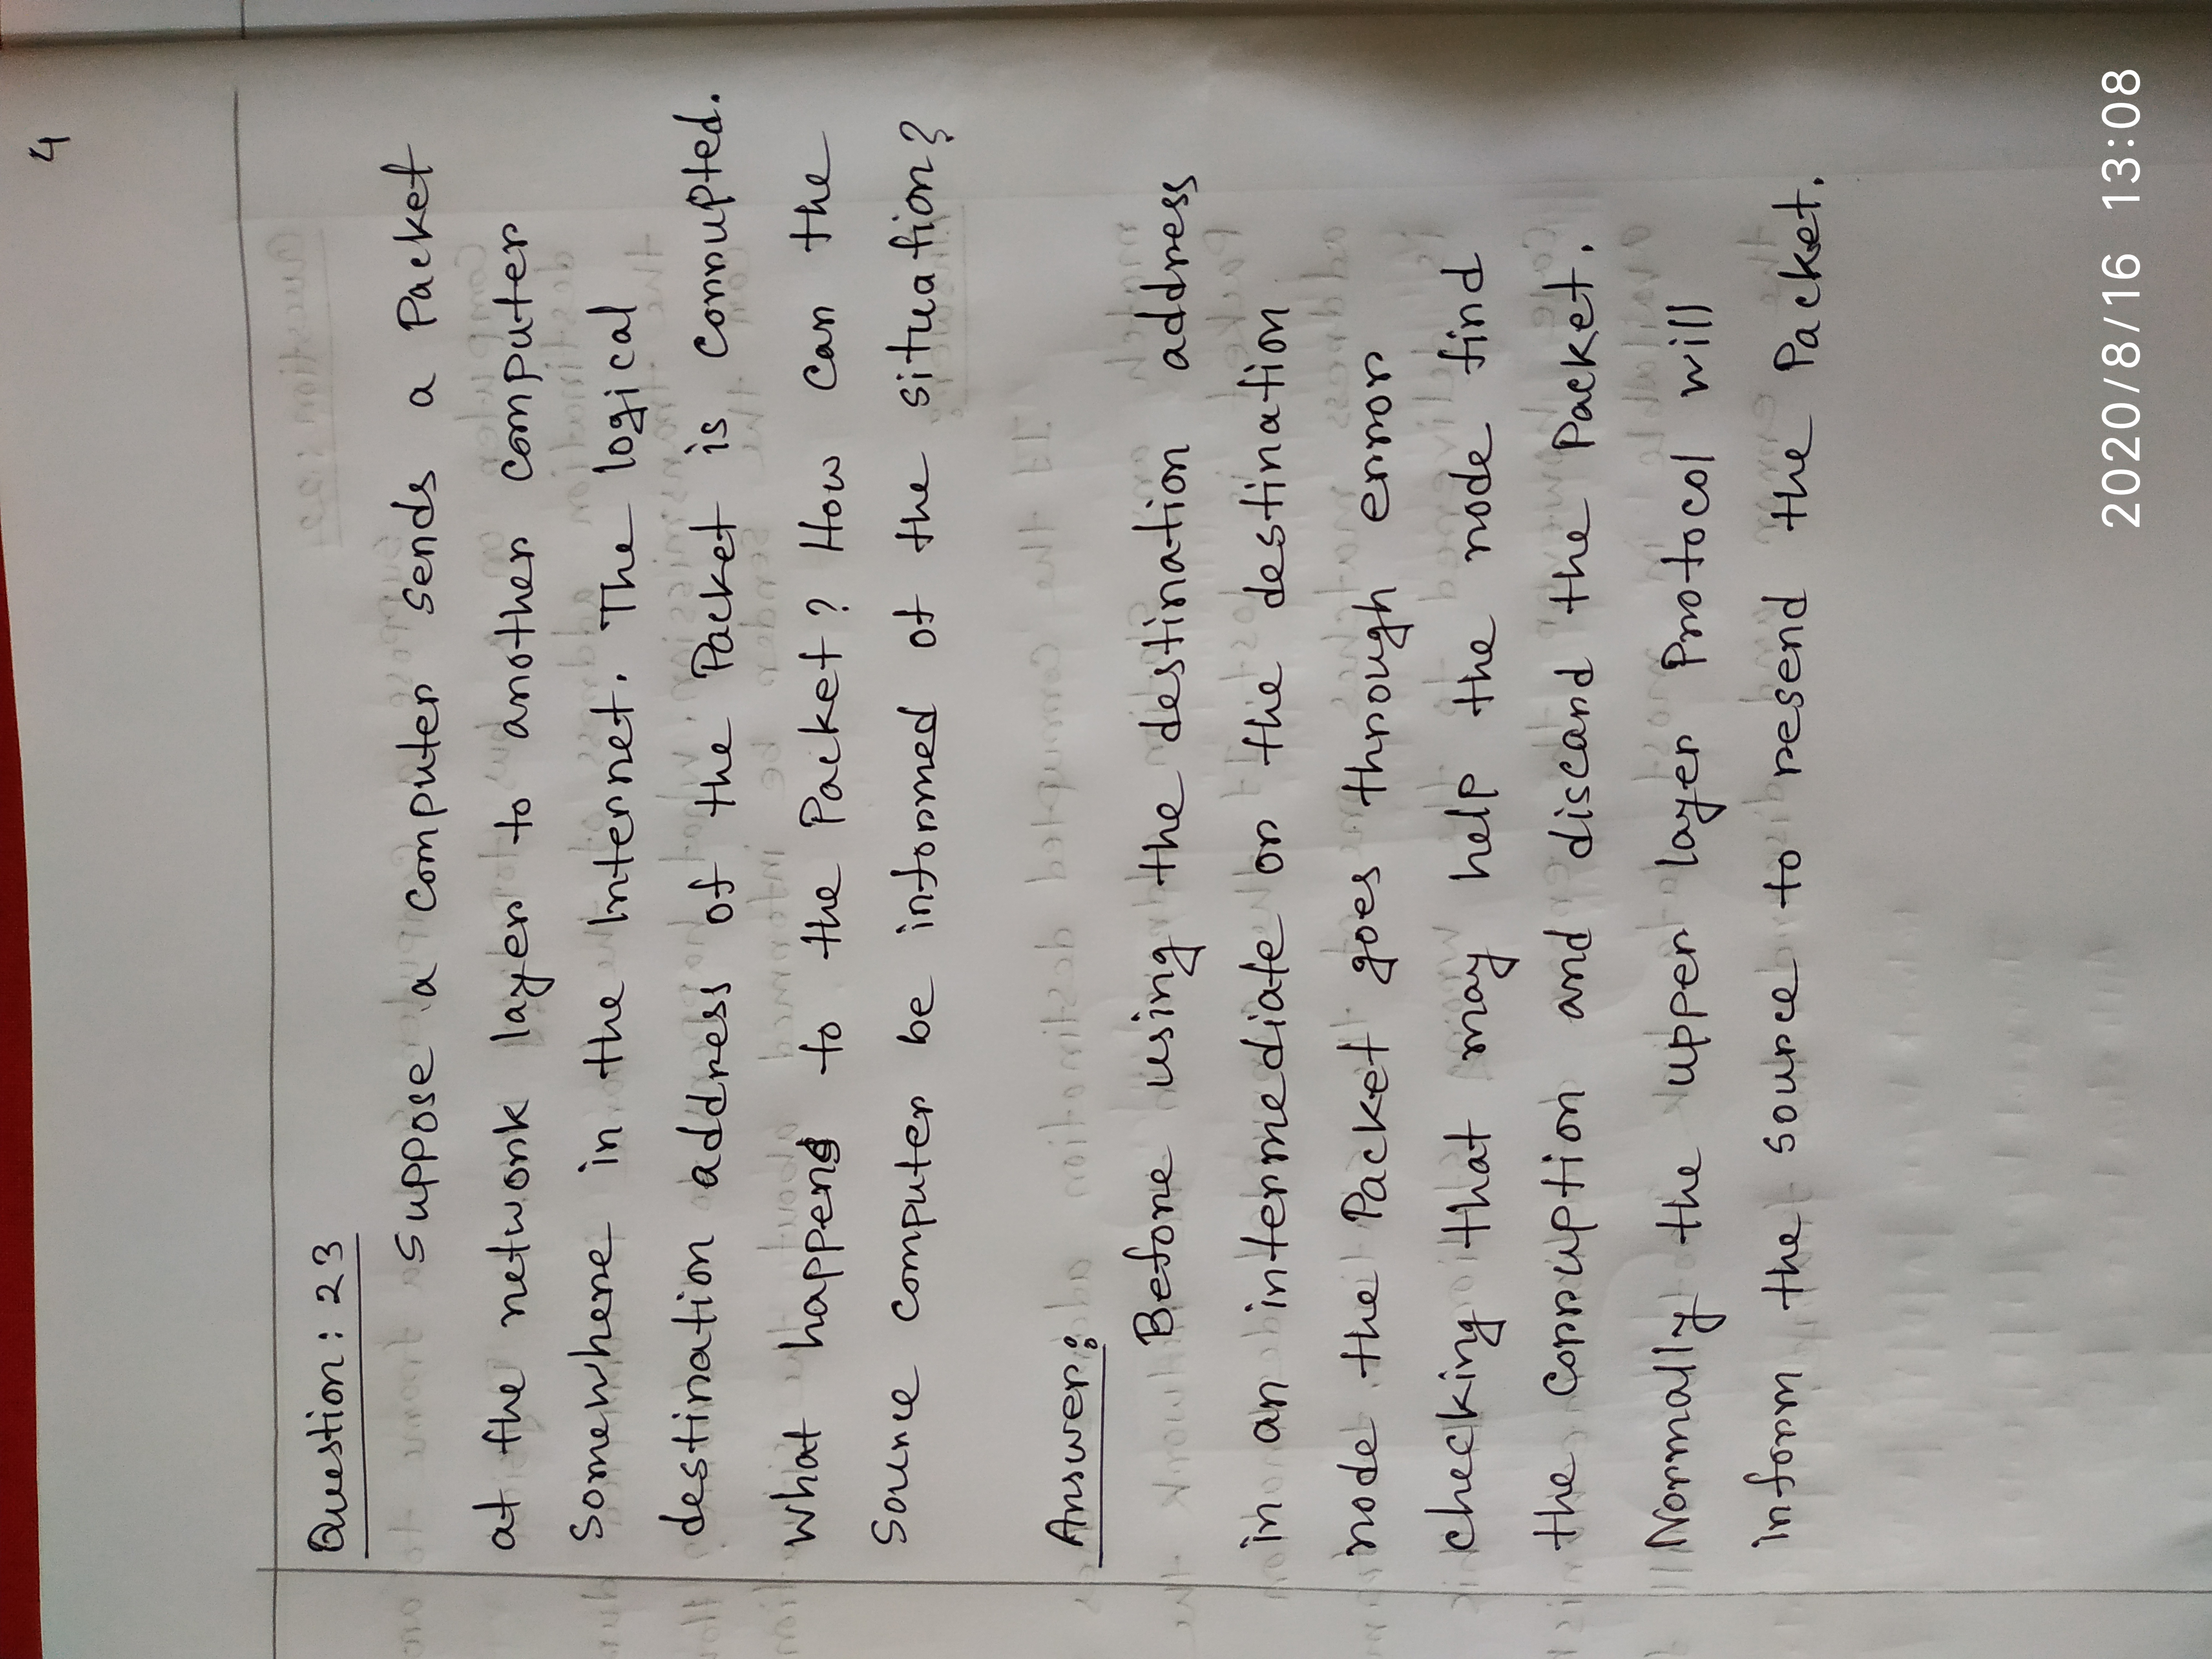 4
Question: 23
Suppose a computer sends a Packet
at the network layer to another computer
somewhere in the Internet. The logical
destination address of the Packet is corrupted.
What happens to the Packet? How can the
source computer be informed of the situation?
Answer:
Before using the destination address
in an intermediate or the destination
node the Packet goes through error
checking that may help the node find
the corruption and discard the Packet.
Normally the upper layer Protocol will
inform the source to resend the Packet.
2020/8/16 13:08